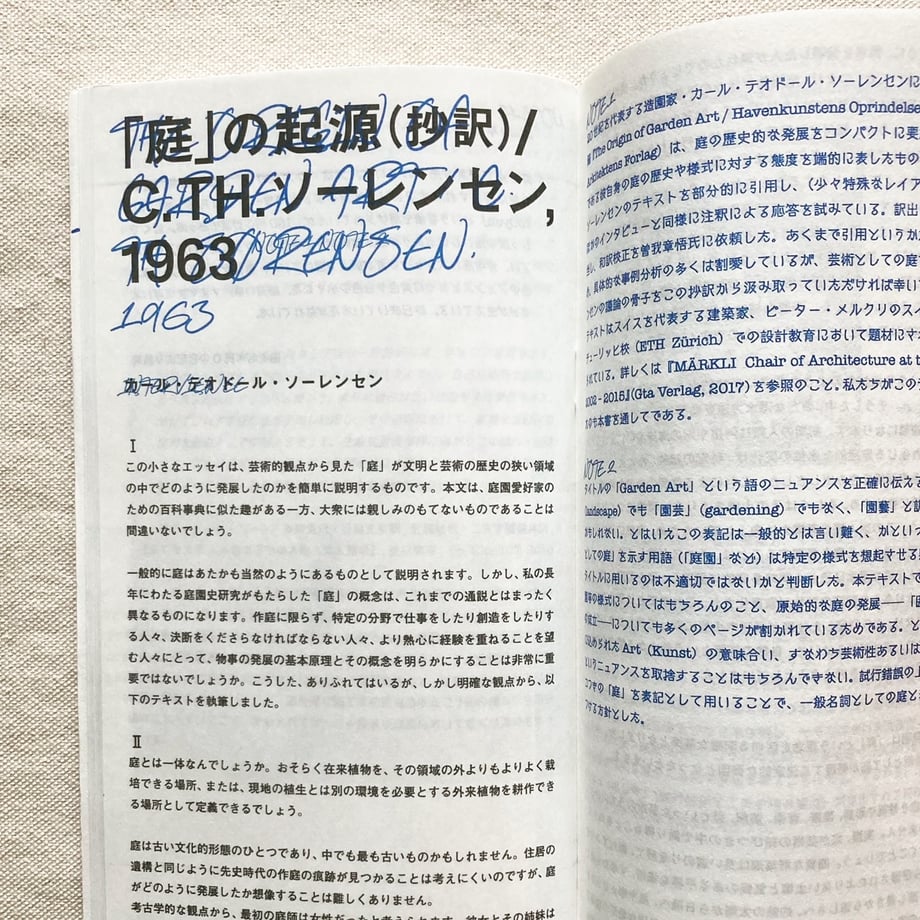 「庭」の起源（抄訳）/
C.TH.ソーレンセン,
1963
THE ORIGIN OF
GARDEN ART / C.
TH. SORENSEN.
1963
カール・テオドール・ソーレンセン
I
この小さなエッセイは、芸術的観点から見た「庭」が文明と芸術の歴史の狭い領域
の中でどのように発展したのかを簡単に説明するものです。本文は、庭園愛好家の
ための百科事典に似た趣がある一方、大衆には親しみのもてないものであることは
間違いないでしょう。
一般的に庭はあたかも当然のようにあるものとして説明されます。しかし、私の長
年にわたる庭園史研究がもたらした「庭」の概念は、これまでの通説とはまったく
異なるものになります。作庭に限らず、特定の分野で仕事をしたり創造をしたりす
る人々、決断をくださらなければならない人々、より熱心に経験を重ねることを望
む人々にとって、物事の発展の基本原理とその概念を明らかにすることは非常に重
要ではないでしょうか。こうした、ありふれてはいるが、しかし明確な観点から、以
下のテキストを執筆しました。
II
庭とは一体なんでしょうか。おそらく在来植物を、その領域の外よりもよりよく栽
培できる場所、または、現地の植生とは別の環境を必要とする外来植物を耕作でき
る場所として定義できるでしょう。
庭は古い文化的形態のひとつであり、中でも最も古いものかもしれません。住居の
遺構と同じように先史時代の作庭の痕跡が見つかることは考えにくいのですが、庭
がどのように発展したか想像することは難しくありません。
考古学的な観点から、最初の庭師は女性だったと考えられます。彼女とその姉妹は
NOTE 1
世紀を代表する造園家・カール・テオドール・ソーレンセンに
『The Origin of Garden Art / Havenkunstens Oprindelse
Arkitektens Forlag）は、庭の歴史的な発展をコンパクトに要
彼自身の庭の歴史や様式に対する態度を端的に表したもの
ソーレンセンのテキストを部分的に引用し、（少々特殊なレイア
のインタビューと同様に注釈による応答を試みている。訳出
和訳校正を曽我章悟氏に依頼した。あくまで引用という
、具体的な事例分析の多くは割愛しているが、芸術としての庭
ンセンの議論の骨子をこの抄訳から汲み取っていただければ幸い
テキストはスイスを代表する建築家、ピーター・メルクリのスイ
チューリッヒ校（ETH Zürich）での設計教育において題材に
れている。詳しくは『MÄRKLI Chair of Architecture at t
2002-2015』（Gta Verlag, 2017）を参照のこと。私たちがこの
も本書を通してである。
NOTE 2
タイトルの「Garden Art」という語のニュアンスを正確に伝える
landscape）でも「園芸」（gardening）でもなく、「園藝」と
かもしれない。とはいえこの表記は一般的とは言い難く、かとい
としての庭」を示す用語（「庭園」など）は特定の様式を想起させる
タイトルに用いるのは不適切ではないかと判断した。本テキストで
の様式についてはもちろんのこと、原始的な庭の発展——「
成立——についても多くのページが割かれているためである。
込められたArt（Kunst）の意味合い、すなわち芸術性あるいは
というニュアンスを取捨することはもちろんできない。試行錯誤の
の「庭」を表記として用いることで、一般名詞としての庭と
する方針とした。